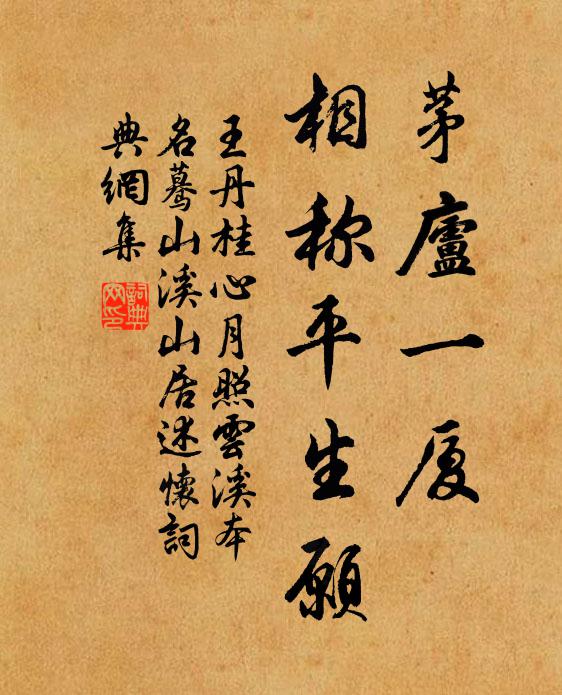 茅廬一厦
相称平生願
王丹桂心月照雲溪本
名驀山溪山居述懷詞
典網集
詞典網印